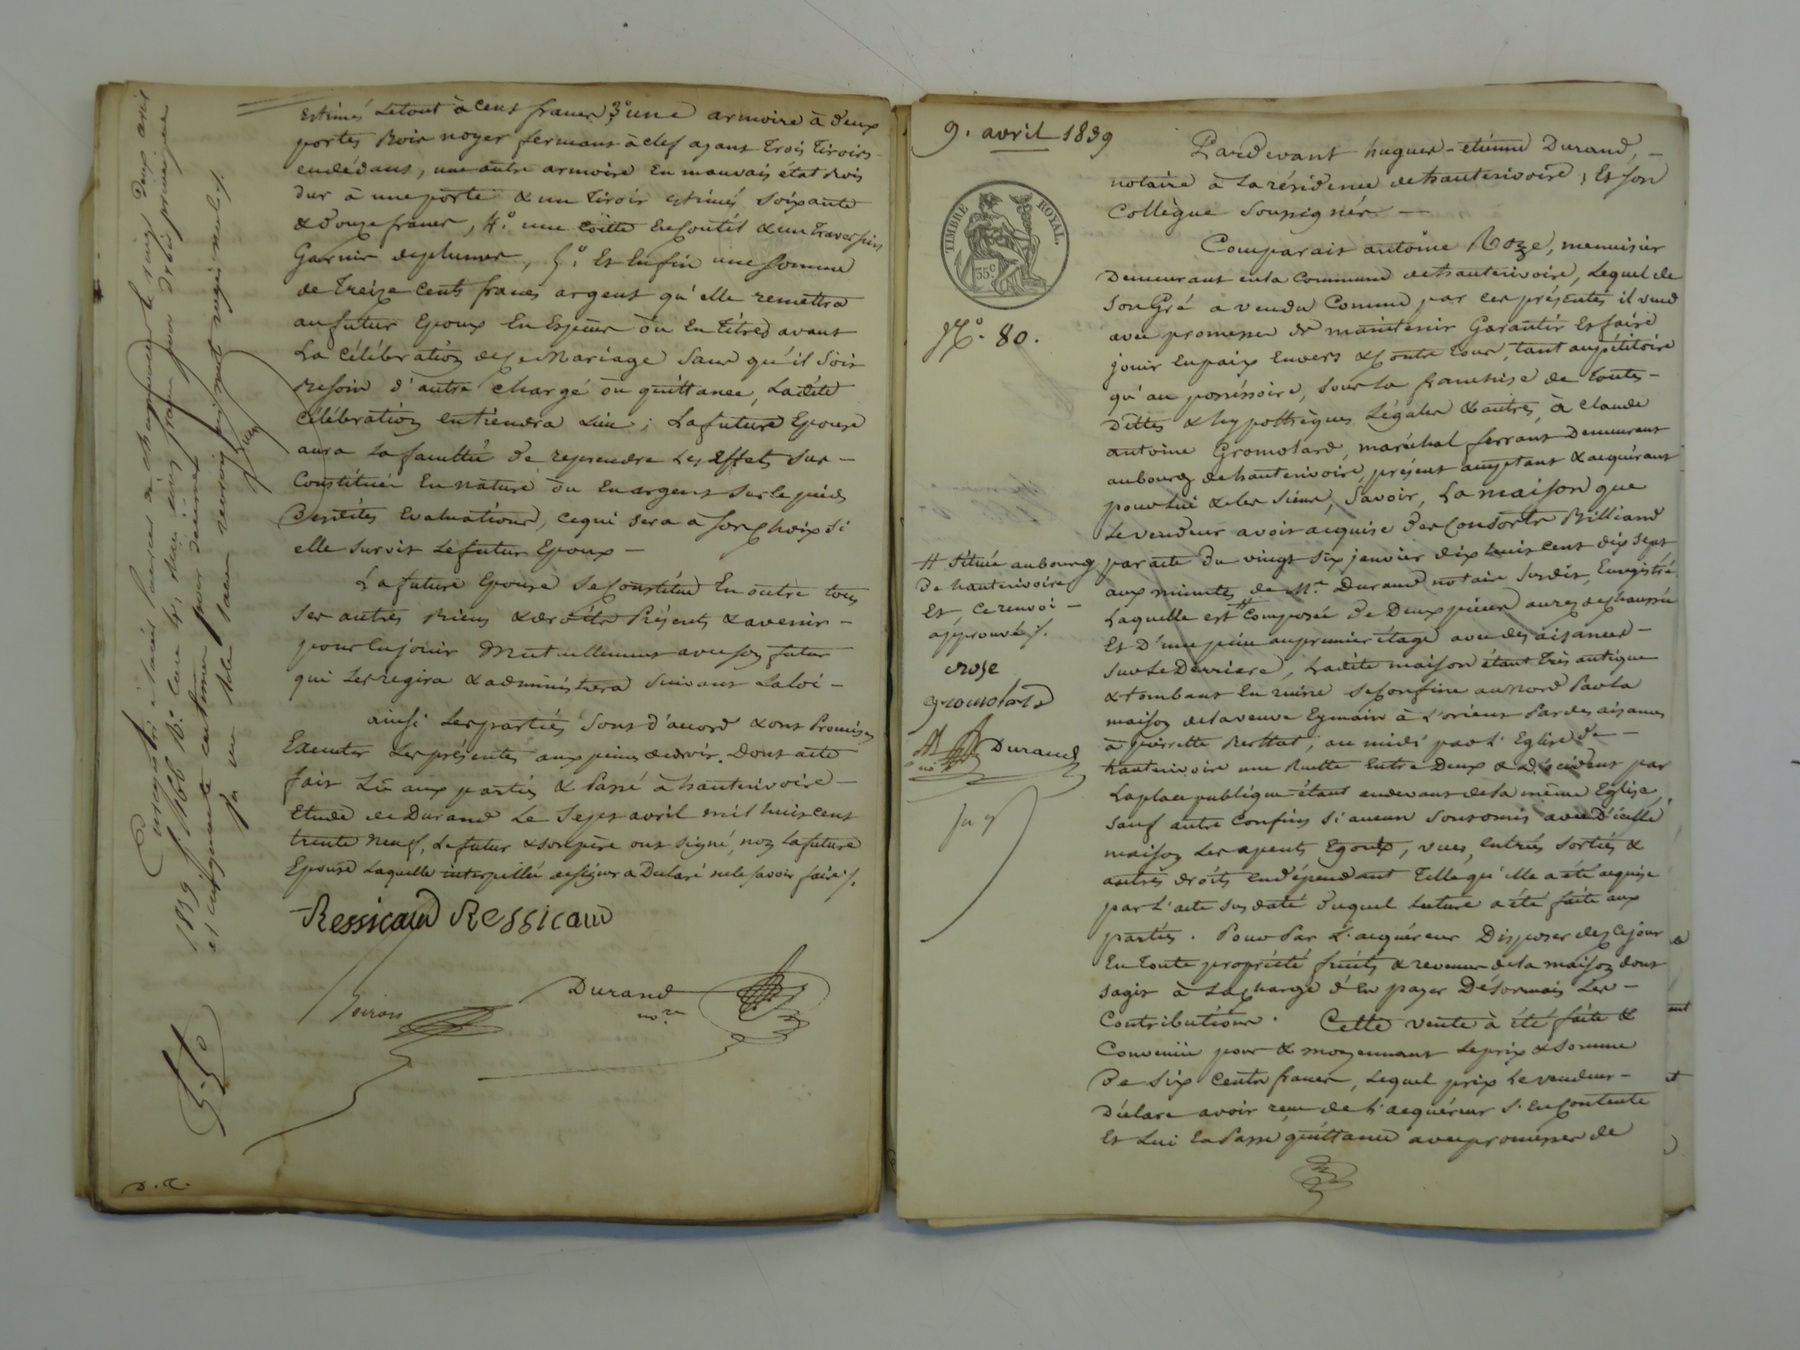 Estimés le tout à cent francs 3.° une armoire à deux
portes bois noyer fermant à clef ayant trois tiroirs
en dédans, une autre armoire en mauvais état bois
dur à une porte & un tiroir estimés soixante
& douze francs, 4.° une coitte en coutil & un traversin
Garnie de plumes, 5.° Et Enfin une somme
de treize cents francs argent qu'elle remettra
au futur Epoux En Espèces ou En titres avant
La Célébration de ce Mariage sans qu'il soit
besoin d'autre chargé ou quittance, Ladite
Célébration en tiendra Lieu ; La future Epouse
aura la faculté de reprendre les Effets sus-
Constitués En nature ou En argent sur le pied
desdites Evaluations, ce qui sera à son choix si
elle survit le futur Epoux —
La future Epouse se Constitue En outre tous
ses autres biens & droits Présents & avenir -
pour En jouir Mutuellement avec son futur
qui les regira & administrera suivant la loi -
ainsi les parties sont d'accord & ont Promis
Executer les présentes aux peines de droit. Dont acte
fait Lû aux parties & Passé à hauterivoire -
Etude de Durand Le Sept avril mil huit cent
trente neuf, Le futur & son père ont signé, non la future
Epouse Laquelle interpellée de signer a Déclaré ne le savoir faire ./.
Ressicaud Ressicaud
Durand
no.re
9. avril 1839
TIMBRE ROYAL
35.c
N.° 80.
Pardevant hugues-etienne Durand, -
notaire à la résidence de hauterivoire, Et son
Collègue soussignés —
Comparait antoine Roze, menuisier
Demeurant en la Commune de hauterivoire, Lequel de
son Gré a vendu Comme par ces présentes il vend
avec promesse de maintenir Garantir Et faire
jouir En paix Envers & Contre tous, tant au pétitoire
qu'au possessoire, sous la franchise de toutes -
dettes & hypothèques Légales & autres, à claude
antoine Gromolard, maréchal ferrant Demeurant
au bourg de hauterivoire, présent acceptant & acquérant
pour lui & les siens, Savoir, La maison que
Le vendeur avoit acquise des Consorts Billiard
par acte du vingt six janvier dix huit cent dix sept
aux minutes de M.e Durand notaire susdit, Enregistré
Laquelle est # Composée de Deux pièces au rez de chaussée
Et d'une pièce au premier étage avec des aisances -
sur le Derriere, Ladite maison étant très antique
& tombant En ruine se Confine au Nord Par la
maison de la veuve Eymain à l'orient Par des aisances
à pierrette Berthat, au midi par l'Eglise de -
hauterivoire une Ruette Entre Deux & D'occident par
La place publique étant au devant de la même Eglise,
sauf autre Confins si aucun sont omis avec D'icelle
maison Les apents Egouts, vues, Entrées sorties &
autres droits En dépendant Telle qu'elle a été acquise
par L'acte sus daté duquel Lecture a été faite aux
parties. Pour Par L'acquéreur Disposer dès ce jour
En toute propriété fruits & revenus de la maison dont
s'agit à la charge d'En payer Désormais Les -
Contributions. Cette vente à été faite &
Convenüe pour & moyennant le prix & somme
De Six Cents francs, Lequel prix Le vendeur -
déclare avoir reçu de L'acquéreur s'En Contente
Et Lui En Passe quittance avec promesse de
# située au bourg
de hauterivoire
Et Ce renvoi -
approuvé ./.
rose
gromolard
Durand
no.re